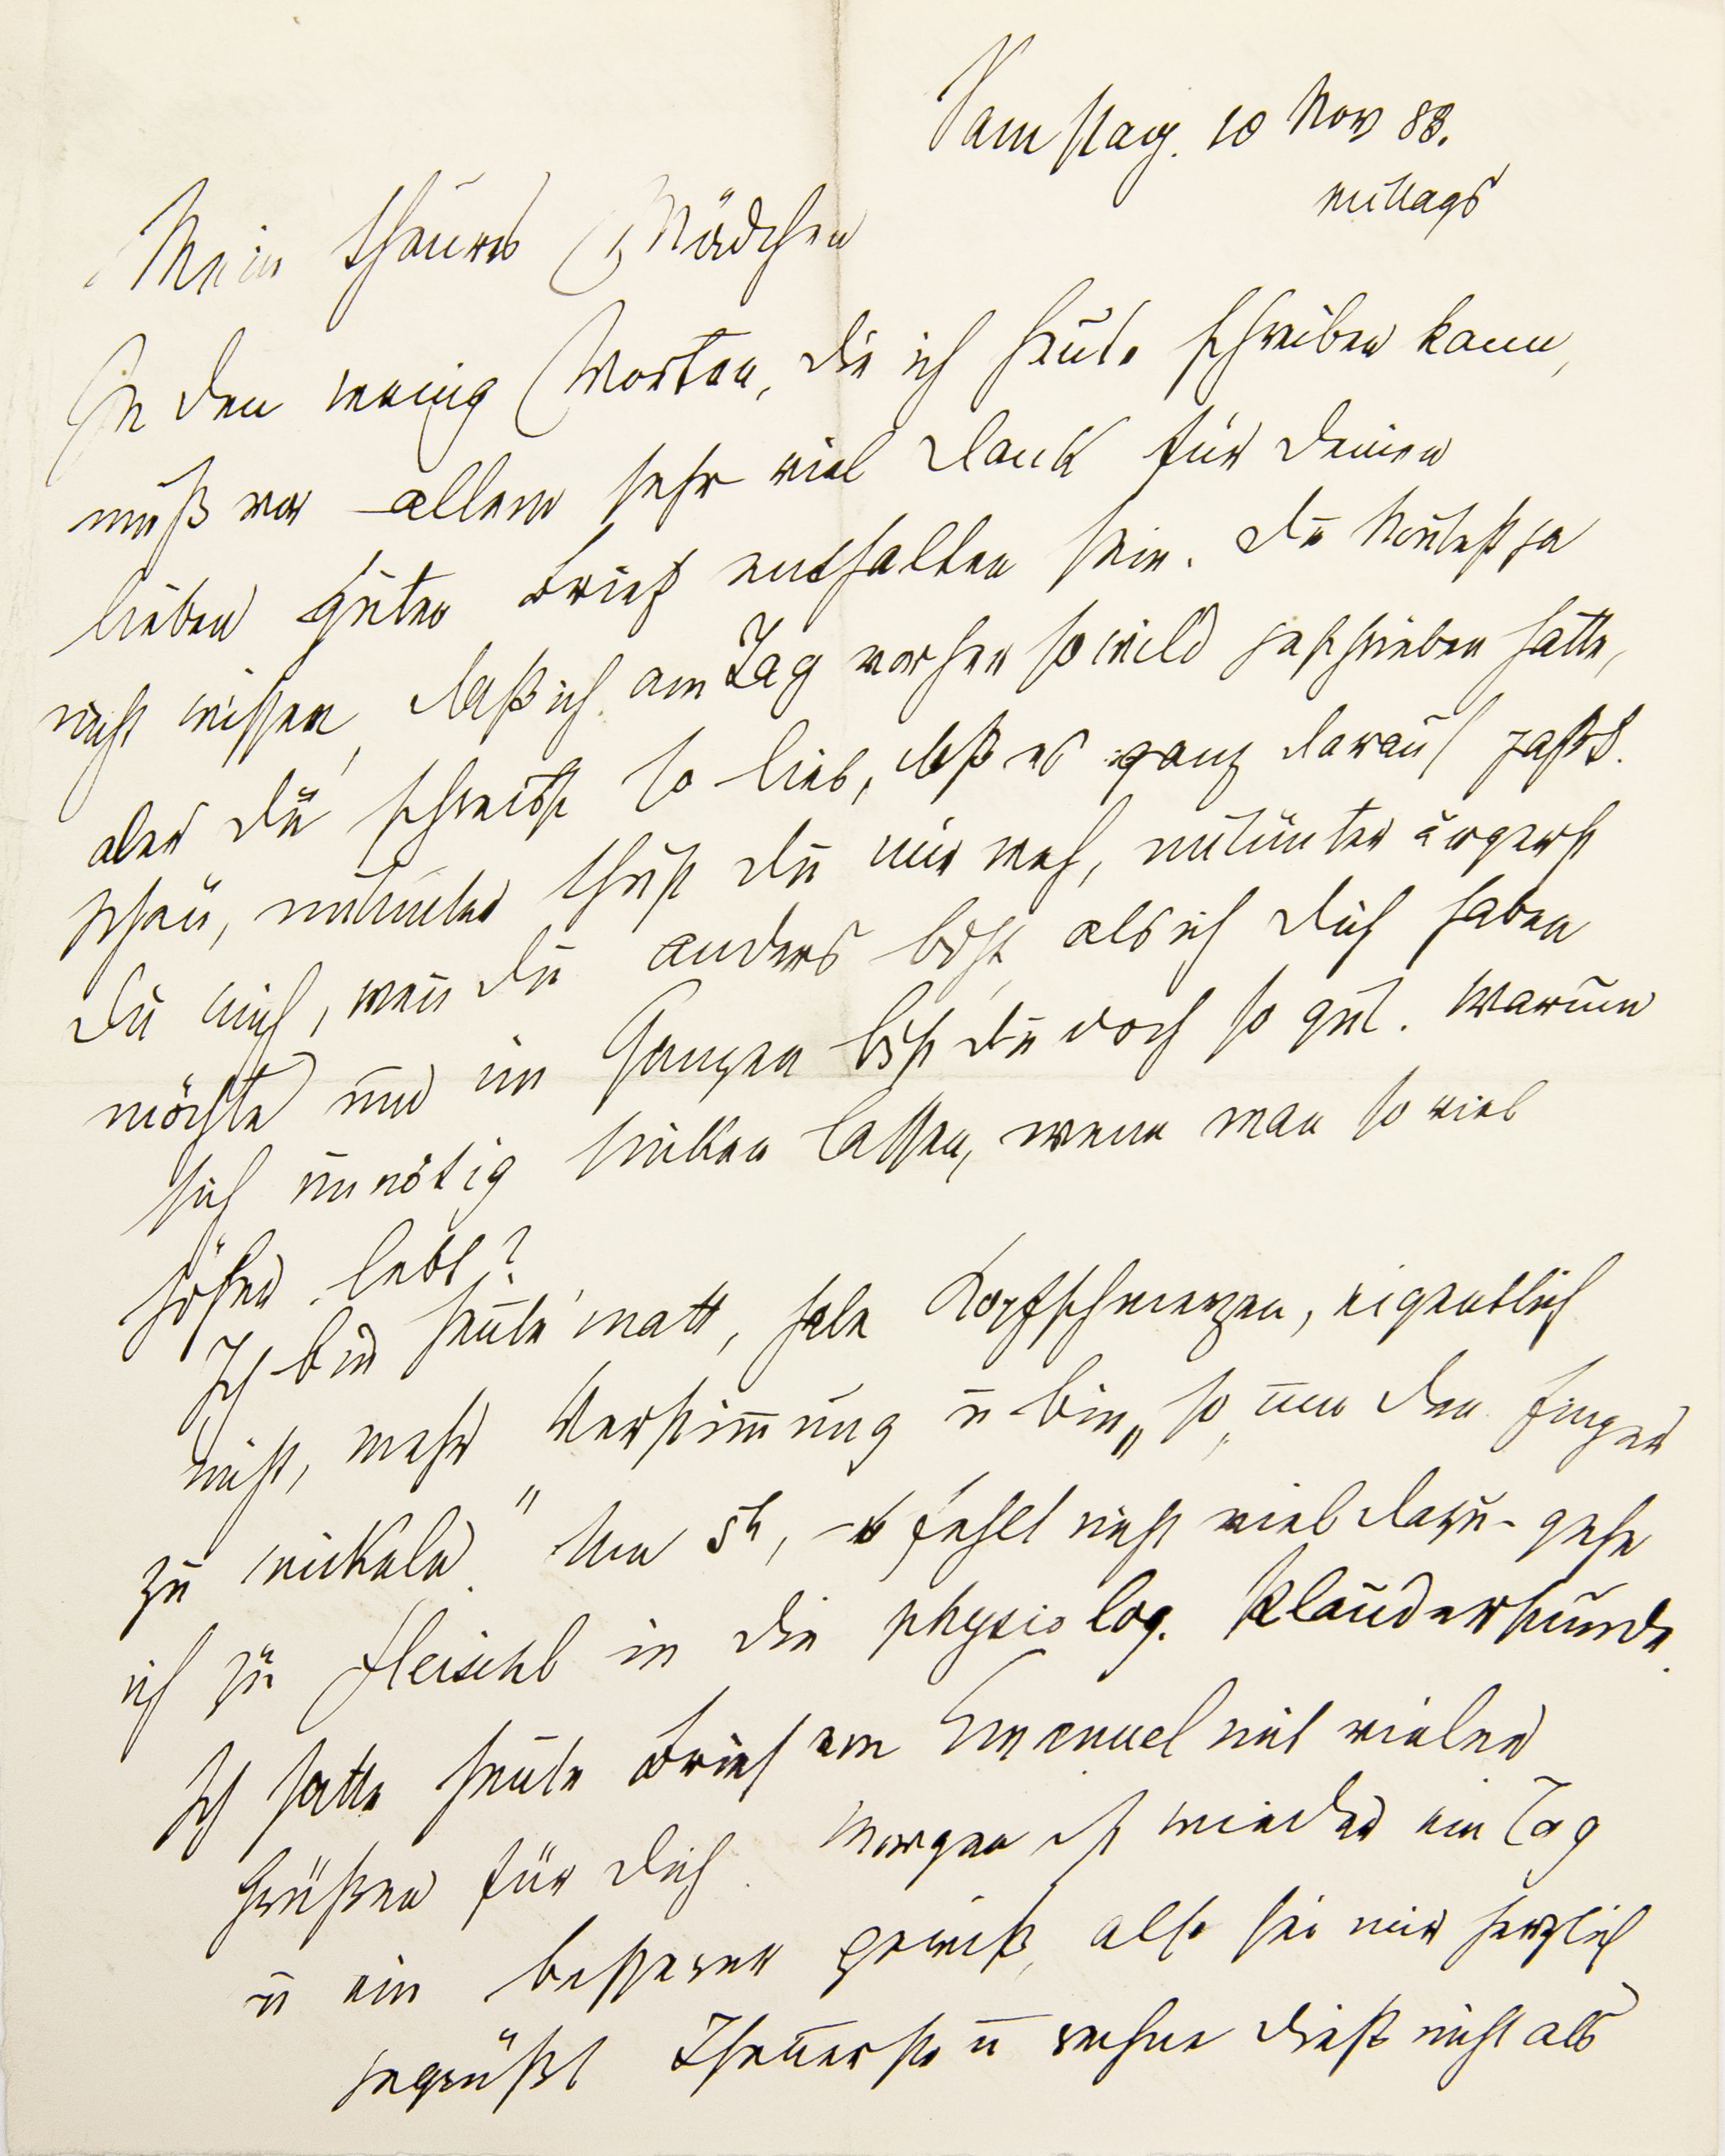 Samstag. 10 Nov 83.
mittags
Mein theures Mädchen
In den wenig Worten, die ich heute schreiben kann,
muß vor allem sehr viel Dank für Deinen
lieben guten Brief enthalten sein. Du konntest ja
nicht wissen, daß ich am Tag vorher so wild geschrieben hatte,
aber Du schreibst so lieb, daß es ganz darauf paßt.
Schau, mitunter thust Du mir weh, mitunter ärgerst
Du mich, weñ Du anders bist, als ich Dich haben
möchte und im Ganzen bist Du doch so gut. Warum
sich unnötig sinken lassen, wenn man so viel
höher lebt?
Ich bin heute matt, habe Kopfschmerzen, eigentlich
nicht, mehr Verstim̄ung u bin „so um den Finger
zu wickeln". Um 5h, – es fehlt nicht viel dazu – gehe
ich zu Fleischl in die physiolog. Plauderstunde.
Ich hatte heute Brief von Emanuel mit vielen
Grüßen für Dich. Morgen ist wieder ein Tag
u ein besserer gewiß, also sei mir herzlich
gegrüßt Theuerste u rechne dieß nicht als